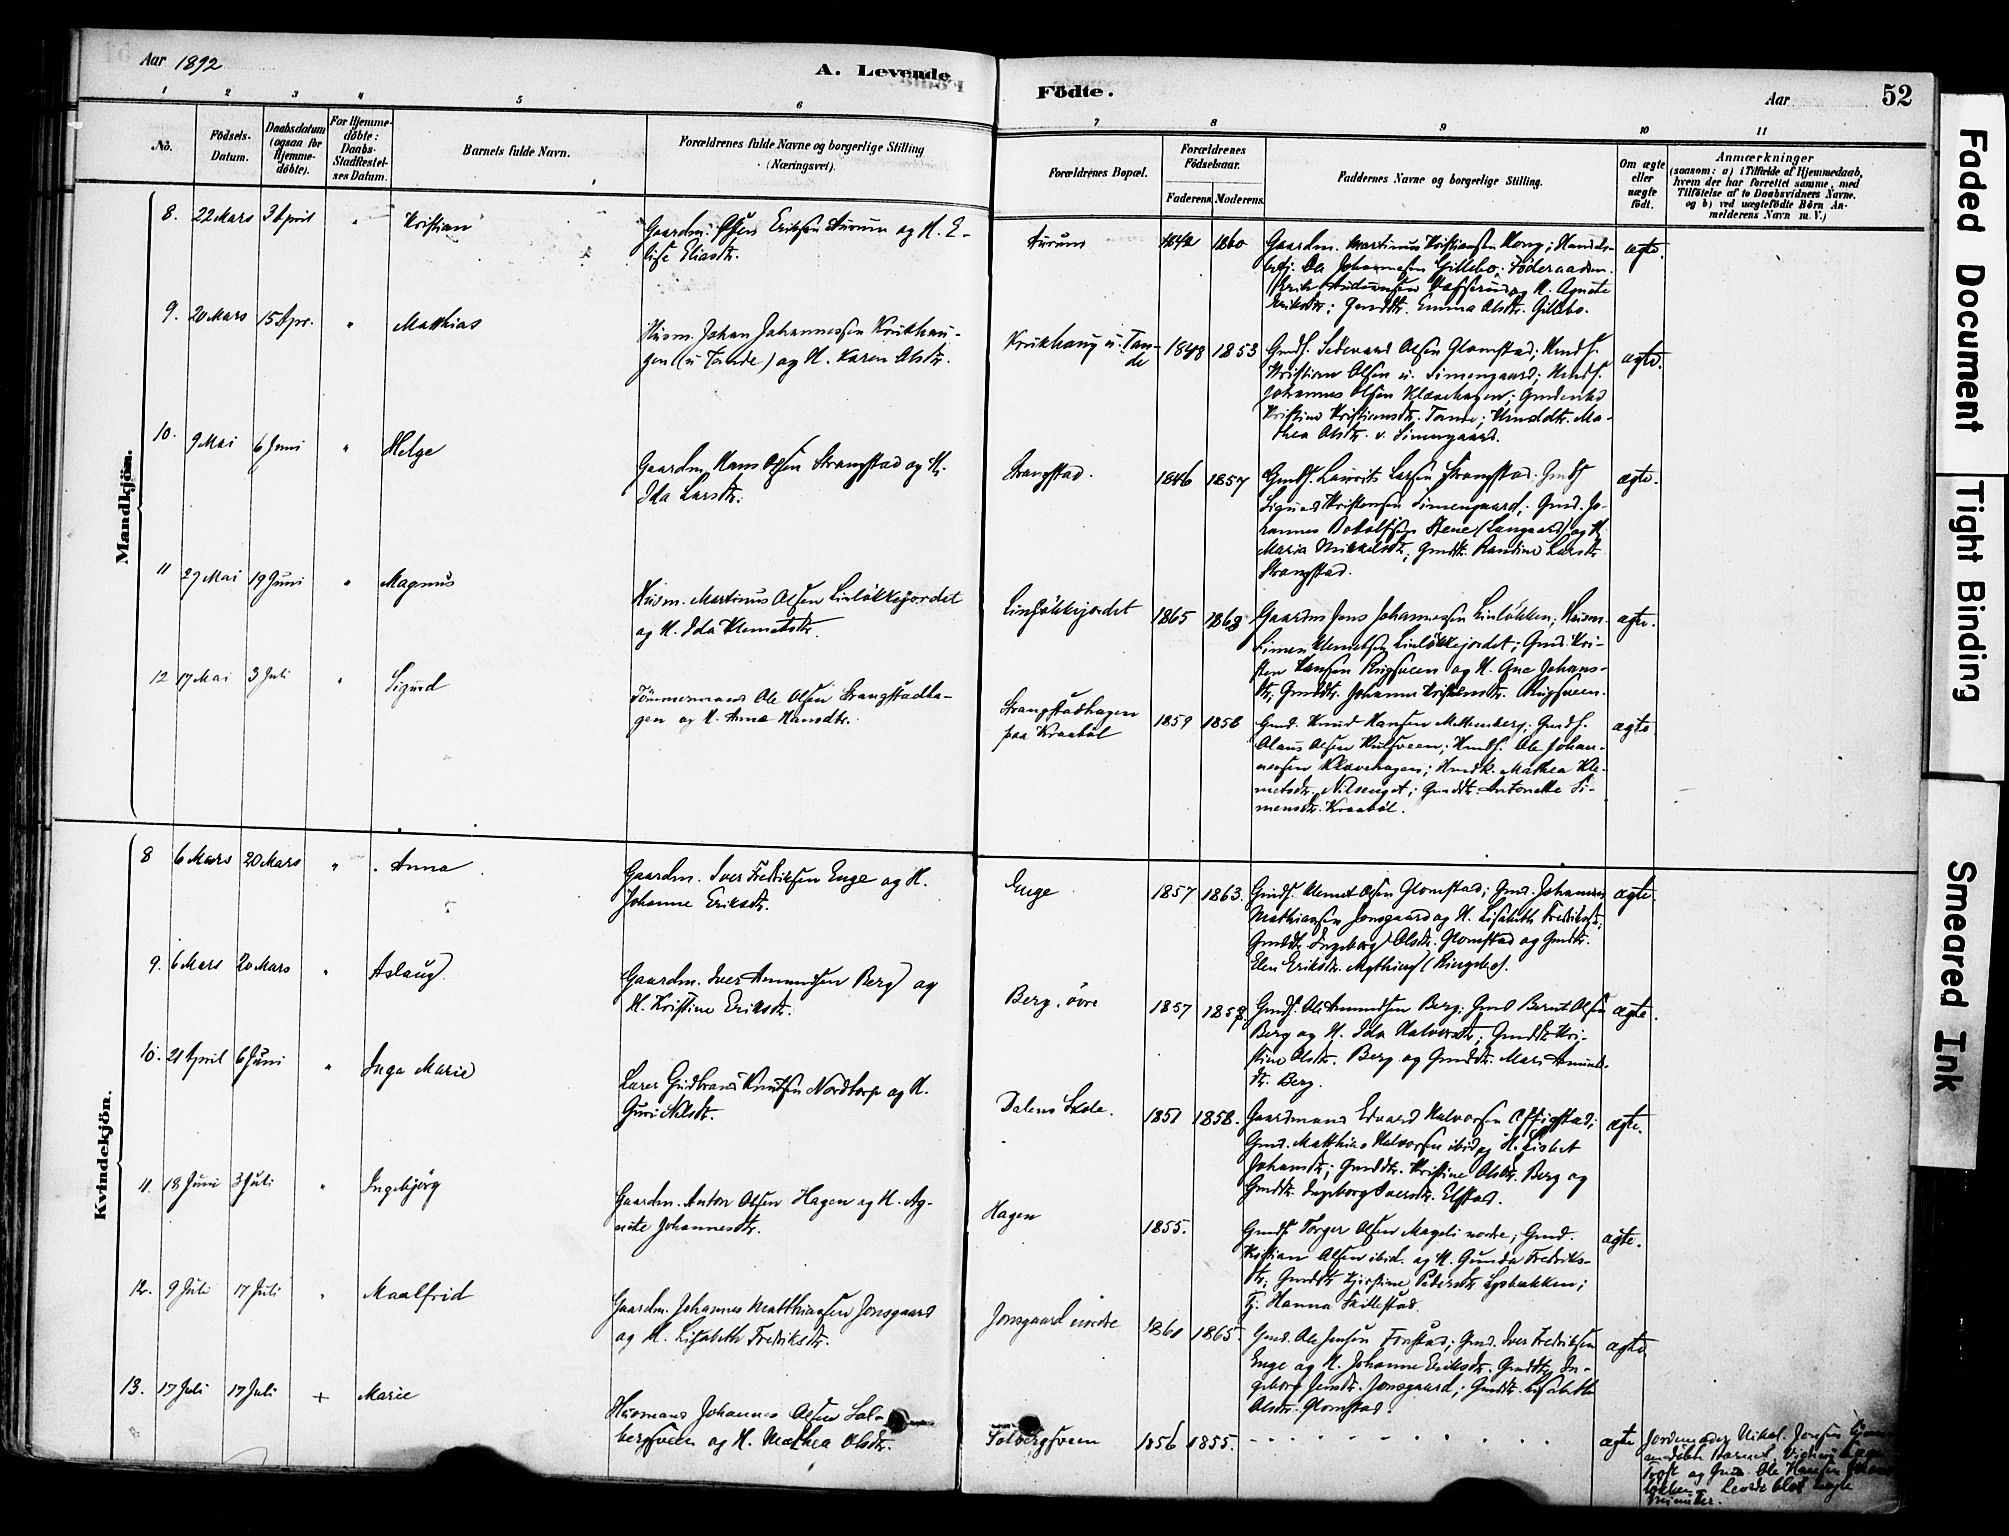 Aar 1892
A. Levende
Födte.
Aar
52
1 2 3 4 5 6 7 8 9 10 11
No.
Födsels-
Datum.
Daabsdatum
(ogsaa for
Hjemme-
döbte).
For Hjemme-
döbte:
Daabs-
Stadfæstel-
ses Datum.
Barnets fulde Navn.
Forældrenes fulde Navne og borgerlige Stilling
(Næringsvei).
Forældrenes Bopæl.
Forældrenes
Födselsaar.
Faderens. Moderens.
Faddernes Navne og borgerlige Stilling.
Om ægte
eller
uægte
födt.
Anmærkninger
(saasom: a) i Tilfælde af Hjemmedaab,
hvem der har forrettet samme, med
Tilföielse af to Daabsvidners Navne.
og b) ved uægtefödte Börn An-
melderens Navn m.V.)
Mandkjön.
8. 22 Mars 3 April " Kristian
Gaardm. Eriksen Aurum og H. E-
lise Eliasdtr.
Aurum 1842 1860
Gaardm. Martinus Kristiansen Kong; Handels-
betj. Ole Johannesen Gillebo; Föderaadsm.
og H. Agnete
Eriksdtr; Emma Olsdtr. Gillebo.
ægte.
9. 20 Mars 15 Apr. " Matthias
Husm. Johan Johannessen Krukhau-
gen (u Tande) og H. Karen Olsdtr.
Krukhaug u. Tan-
de 1848 1853
Gmds. Sedevard Olsen Glomstad; Hmds.
Kristian Olsen u. Simengaard; Hmds.
Johannes Olsen Klævehagen; Gmdenke
Kristine Kristiansdtr. Tande; Hmddtr. Ma-
thea Olsdtr. v. Simengaard.
ægte.
10. 9 Mai 6 Juni " Helge
Gaardm. Hans Olsen Strangstad og H.
Ida Larsdtr.
Strangstad. 1846 1857
Gmds. Laurits Larsen Strangstad; Gmds
Sigurd Kristensen Simengaard; Gmd. Jo-
hannes Botolfsen Stene (Langaard) og H.
Maria Mikkelsdtr; Gmddtr. Randine Larsdtr
Strangstad.
ægte.
11 29 Mai 19 Juni " Magnus
Husm. Martinus Olsen Linlökkejordet
og H. Ida Klemetsdtr.
Linlökkejordet 1865 1868
Gaardm Jens Johannessen Linlökken; Husm.
Simen Klemetsen Linlökkejordet; Gmd. Kri-
sten Hansen Rugsveen og H. Ane Johans-
dtr; Gmddtr. Johanne Kristensdtr. Rugsveen.
ægte.
12 17 Mai 3 Juli " Sigurd
Tömmermand Ole Olsen Strangstadha-
gen og H. Anne Hansdtr.
Strangstadhagen
paa Kraaböl 1859 1858
Gmd. Knud Hansen Mellemberg; Gmds.
Olaus Olsen Kulsveen; Hmds. Ole Johan-
nessen Klævehagen; Hmdk. Mathea Kle-
metsdtr. Nilsenget; Gmddtr. Antonette Si-
mensdtr. Kraaböl.
ægte.
Kvindekjön.
8 6 Mars 20 Mars " Anna
Gaardm. Iver Fredriksen Enge og H.
Johanne Eriksdtr.
Enge 1857 1863.
Gmds. Klemet Olsen Glomstad; Gmd. Johannes
Mathiassen Jonsgaard og H. Lisabeth Fredriksdtr;
Gmddtr. Ingeborg Olsdtr. Glomstad og Gmdtr.
Elen Eriksdtr. Mythiuf (Ringebo).
ægte.
9. 6 Mars 20 Mars " Aslaug
Gaardm. Iver Amundsen Berg og
H. Kristine Eriksdtr.
Berg, övre 1857 1858.
Gmds. Ole Amundsen Berg; Gmd Bernt Olsen
Berg og H. Ida Halvorsdtr; Gmddtr Kri-
stine Olsdtr. Berg og Gmddtr. Mari Amunds-
dtr. Berg.
ægte.
10. 21 April 6 Juni " Inga Marie
Lærer Gudbrand Knudsen Nordtorp og H.
Guri Nilsdtr.
Dalens Skole. 1851 1858.
Gaardmand Edvard Halvorsen Offigstad;
Gmd. Matthias Halvorsen ibid. og H. Lisbet
Johansdtr; Gmddtr. Kristine Olsdtr. Berg og
Gmddtr. Ingeborg Iversdtr. Elstad.
ægte.
11. 18 Juni 3 Juli " Ingebjörg
Gaardm. Anton Olsen Hagen og H. Ag-
nete Johannesdtr.
Hagen 1855.
Gmds. Torger Olsen Mageli nordre; Gmd.
Kristian Olsen ibid. og H. Gunda Fredriks-
dtr; Gmddtr. Kjerstine Pedersdtr. Lysbakken;
Tj. Hanna Skillestad.
ægte.
12. 9 Juli 17 Juli " Maalfrid
Gaardm. Johannes Matthiassen Jonsgaard
og H. Lisabeth Fredriksdtr.
Jonsgaard nordre 1861 1865.
Gmd. Ole Jensen Fonstad; Gmd. Iver Fredriksen
Enge og H. Johanne Eriksdtr. Gmddtr. In-
geborg Jensdtr. Jonsgaard; Gmddtr. Lisabeth
Olsdtr. Glomstad.
ægte.
13. 17 Juli 17 Juli + Marie
Husmand Johannes Olsen Sol-
bergsveen og H. Mathea Olsdtr.
Solbergsveen 1856 1855.
ægte
Jordemoder Nikol. Jensen hjemme-
döbte Barnet.
og Gmd. Ole Hansen
Levede blot nogle
Minutter.
Faded Document
Tight Binding
Smeared Ink